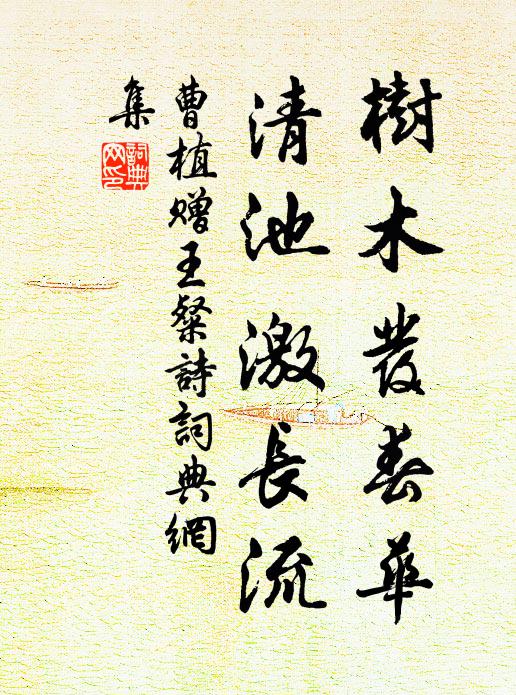 樹木發春華
清池激長流
曹植贈王粲詩詞典網
集
詞典網印